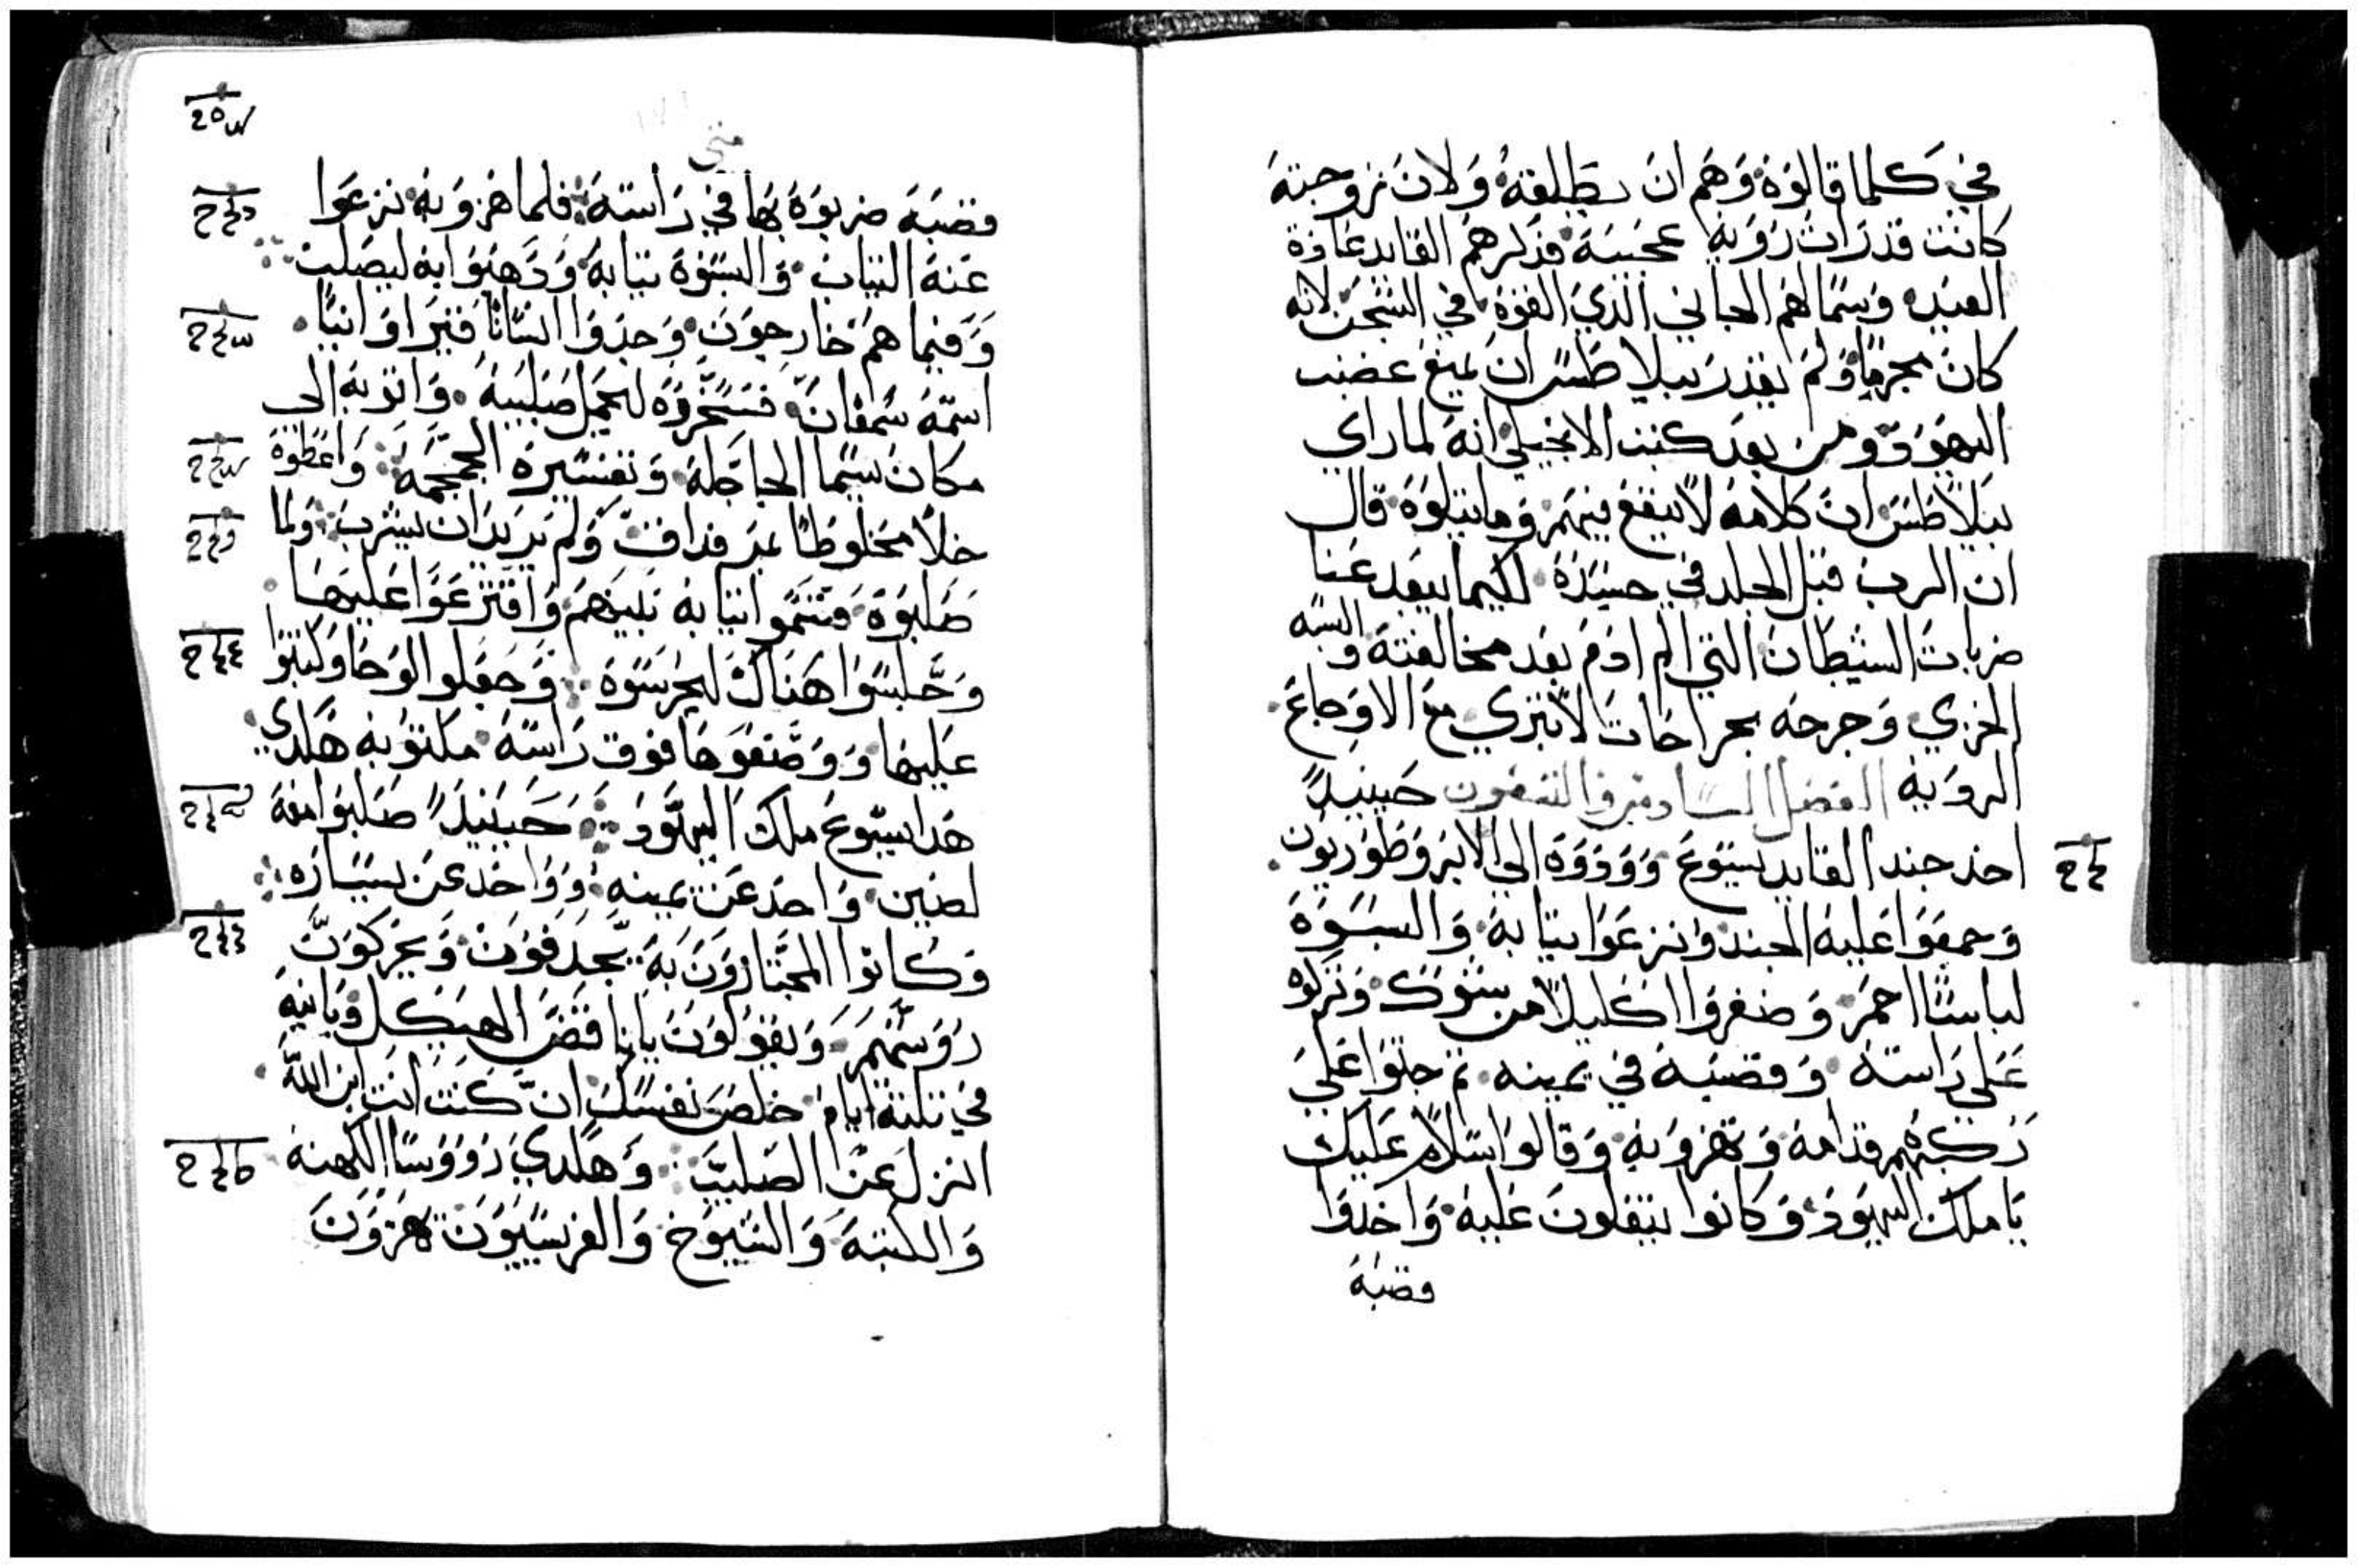 في كلما قالوه وهم ان يطلقه ولان زوجته
كانت قد رات رويه عجيبه فذكرهم القايد عادة
العيد وسما لهم الجاني الذي القوه في السجن لانه
كان مجرما ولم يقدر بيلاطس ان يمنع غضب
اليهود ومن بعد كتب الانجيلي انه لما راي
بيلاطس ان كلامه لا ينفع فيهم وما يتلوه قال
ان الرب قبل الجلد في جسده لكيما يبعد عنا
ضربات الشيطان التي الم ادم بعد مخالفته والبسه
الخزي وجرحه بجراحات لا تبري مع الاوجاع
الرويه الفصل السادس والتسعون حينيذ
اخذ جند القايد يسوع وودوه الي الابروطوريون
وجمعوا عليه الجند ونزعوا تيابه والبسوه
لباسا احمر وضفروا اكليلا من شوك وتركوه
علي راسه وقصبه في يمينه تم جتوا علي
ركبهم قدامه وتهزوا به وقالوا سلام عليك
يا ملك اليهود وكانوا يتفلون عليه واخدوا
قصبه
متي
قصبه ضربوه بها في راسه فلما هزوا به نزعوا
عنه التياب والبسوه تيابه ودهبوا به ليصلب
وفيما هم خارجون وجدوا انسانا قيراوانيا
اسمه سمعان فسخروه ليحمل صليبه واتوا به الي
مكان يسما الجاجله وتفسيره الجمجمه واعطوه
خلا مخلوطا بمر فداق ولم يريد ان يشرب ولما
صلبوه قسموا تيابه بينهم واقترعوا عليها
وجلسوا هناك ليحرسوه وجعلوا لوحا وكتبوا
عليها ووضعوها فوق راسه مكتوبه هكدي
هدا يسوع ملك اليهود حينيذ صلبوا معه
لصين واحد عن يمينه وواحد عن يساره
وكانوا المجتازون به يجدفون ويحركون
رووسهم ويقولون يا ناقض الهيكل وبانيه
في تلتة ايام خلص نفسك ان كنت انت ابن الله
انزل عن الصليب وهكدي رووسا الكهنه
والكتبه والشيوخ والفريسيون يهزون